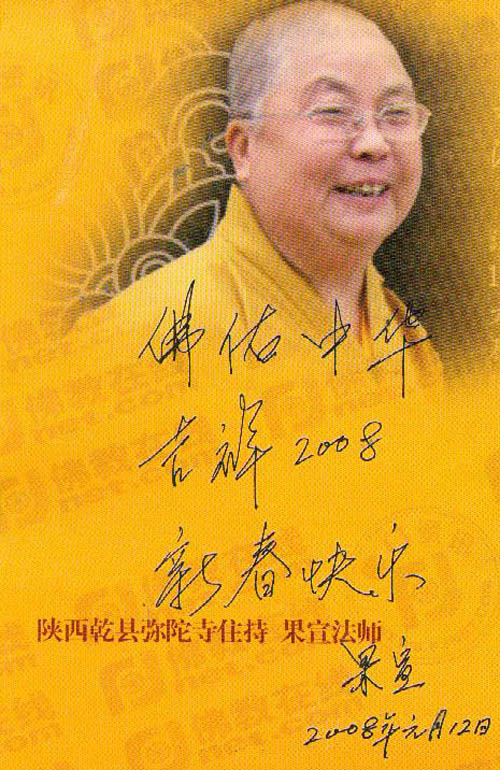 佛佑中华
吉祥2008
新春快乐
陕西乾县弥陀寺住持 果宣法师
果宣
2008年元月12日
佛教在线